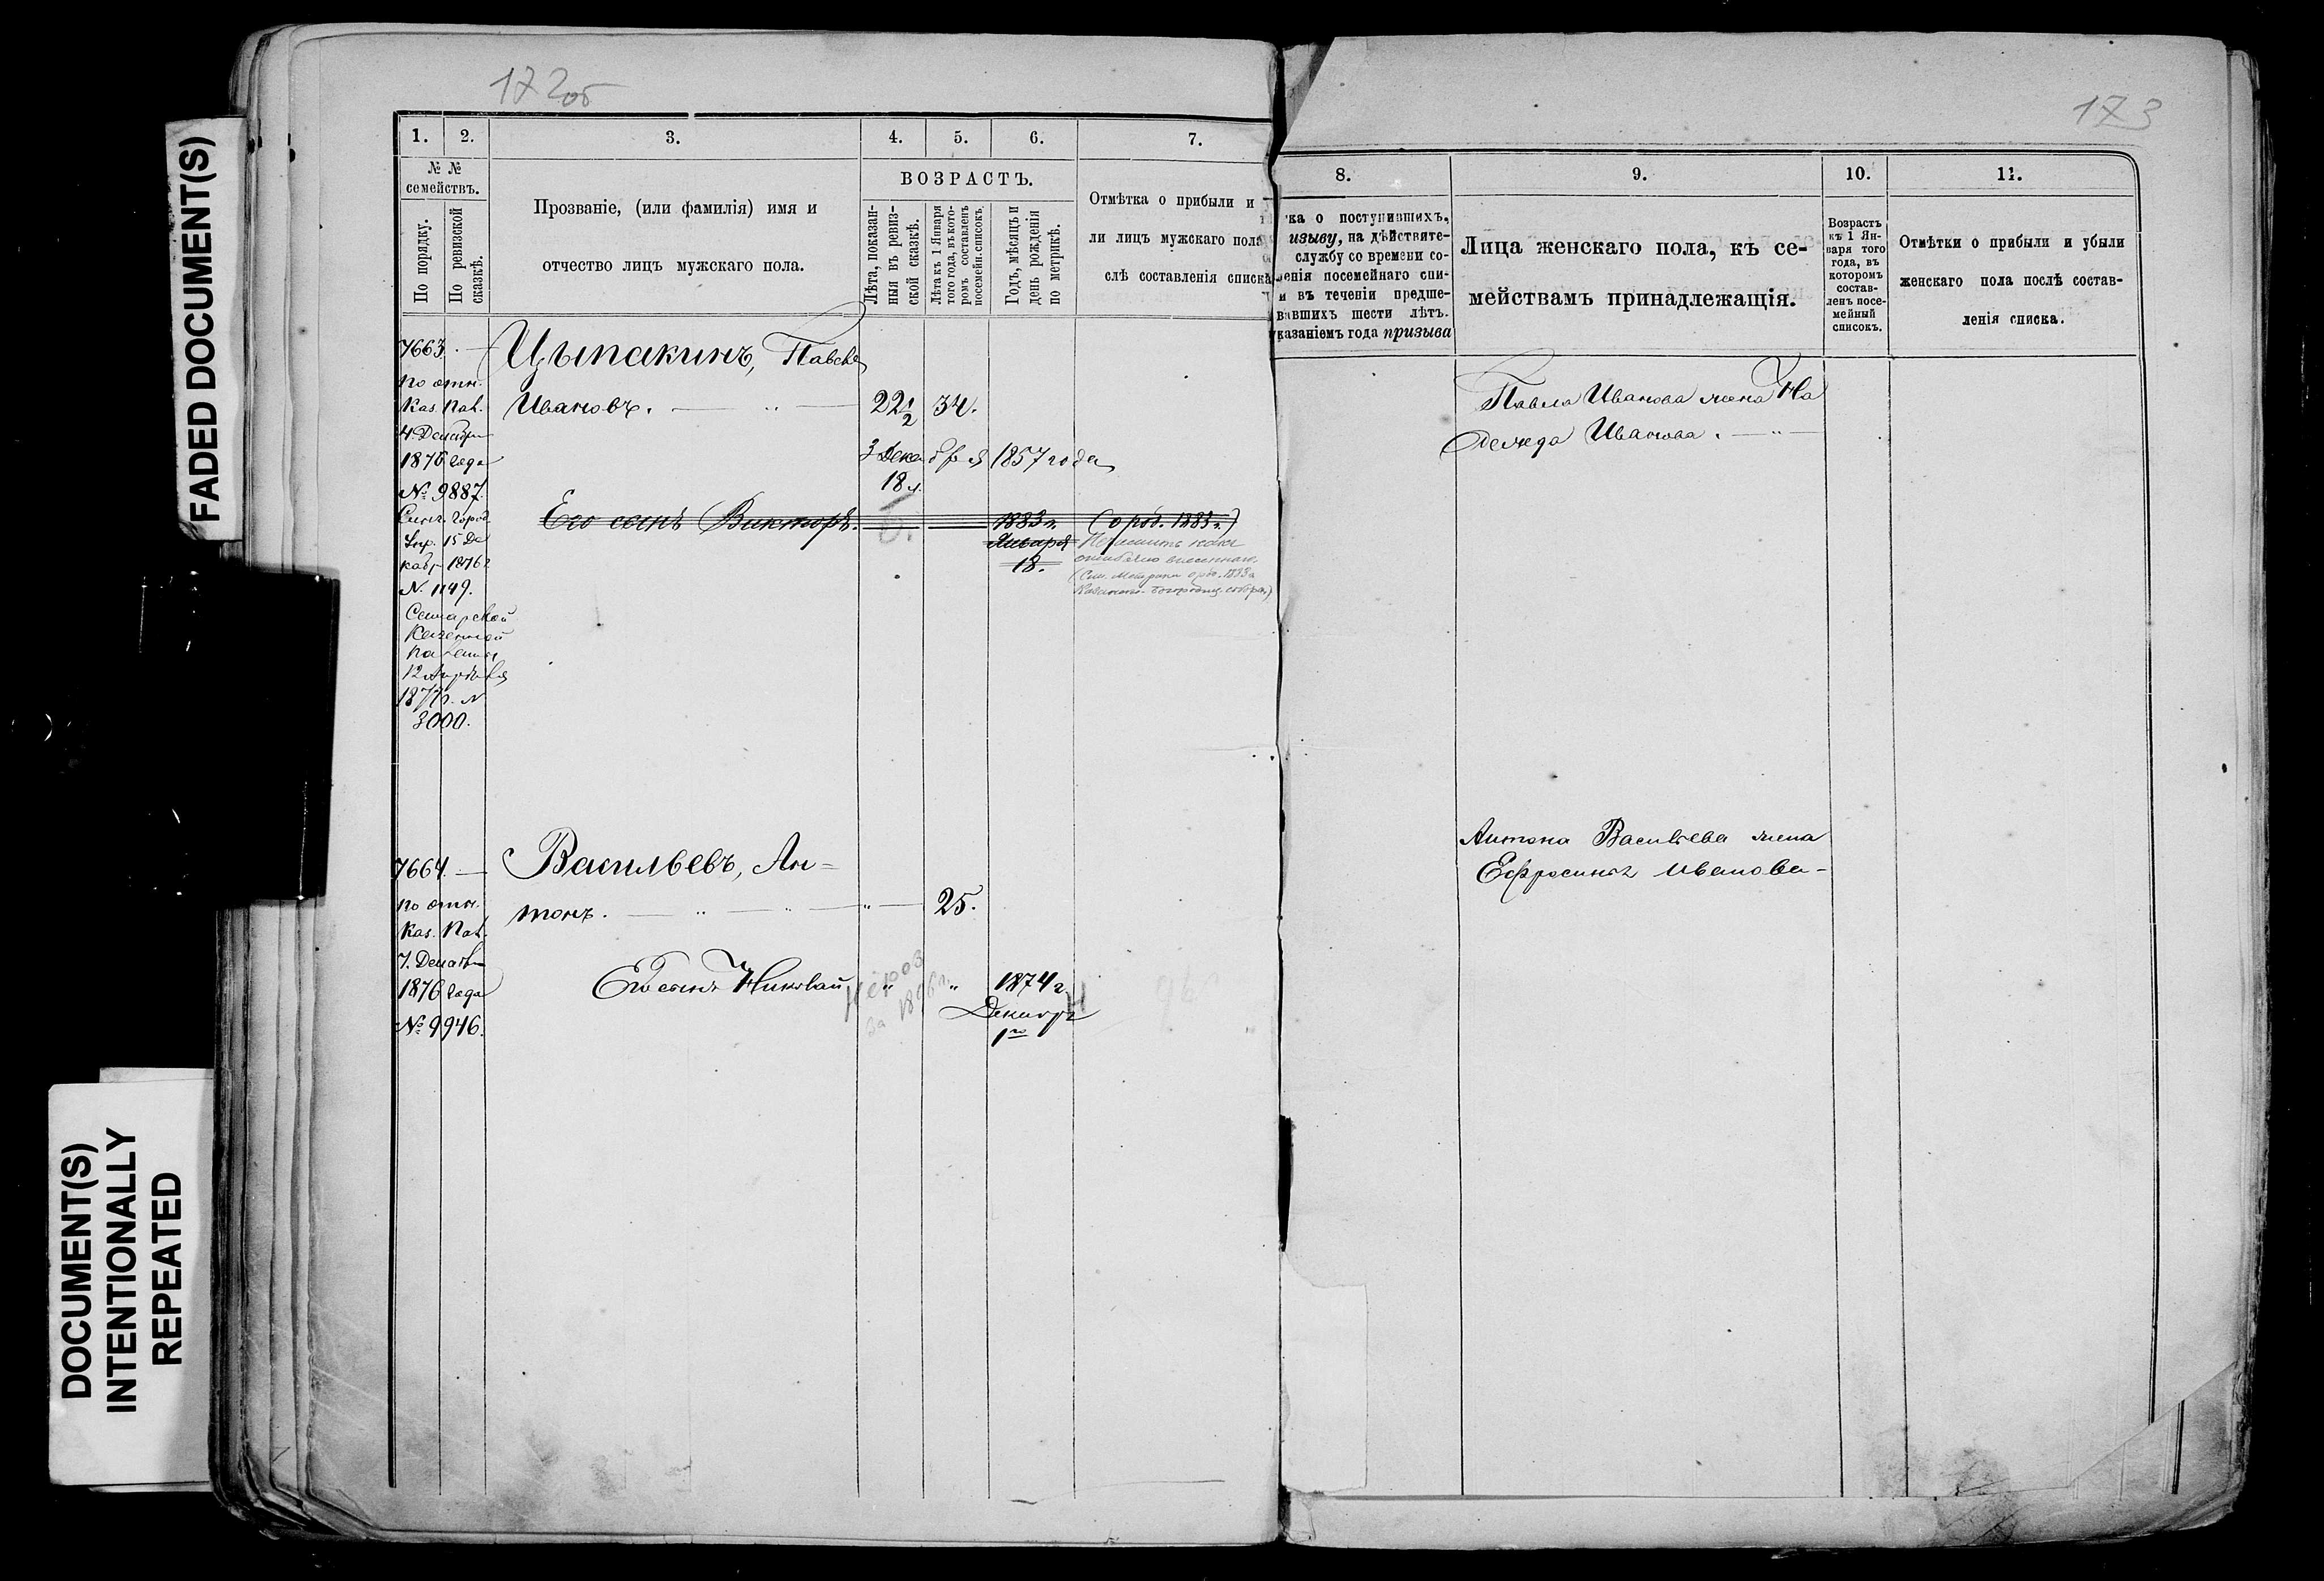 FADED DOCUMENT(S)
DOCUMENT(S)
INTENTIONALLY
REPEATED
172об
1.
2.
3.
4.
5.
6.
7.
№ №
семействъ.
По порядку.
По ревизской
сказкѣ.
Прозваніе, (или фамилія) имя и
отчество лицъ мужскаго пола.
ВОЗРАСТЪ.
Лѣта, показан-
ныя въ ревиз-
ской сказкѣ.
Лѣта къ 1 Января
того года, въ кото-
ромъ составленъ
посемейн. списокъ.
Годъ, мѣсяцъ и
день рожденія
по метрикѣ.
Отмѣтка о прибыли и
ли лицъ мужскаго пола
слѣ составленія списка
7663. —
по отн.
Каз. Пал.
4. Декабря
1876 года
№ 9887.
Симб. Город.
Упр. 15 Де
кабр 1876 г
N. 1149.
Самарской
Казенной
палаты
12 Апрѣля
1877 г. N
3000.
Цыпакинъ, Павелъ
Ивановъ. — „ — 22 1/2 34.
3 Декабря 1857 года
18 л.
Его сынъ Викторъ. 1883 г. (о род. 1883 г.)
Января
18.
ошибочно внесеннаго.
7664. —
по отн.
Каз. Пал.
7. Декабря
1876 года
№ 9946.
Васильевъ, Ан=
тонъ. — „ — „ — „ — 25.
Его сынъ Николай „ „ 1874 г.
Декабр
1го
за 1896 г.
173
8.
9.
10.
11.
ка о поступившихъ,
изыву, на дѣйствите-
службу со времени со-
ленія посемейнаго спи-
и въ теченіи предше-
вавшихъ шести лѣтъ.
указаніемъ года призыва
Лица женскаго пола, къ се-
мействамъ принадлежащія.
Возрастъ
къ 1 Ян-
варя того
года, въ
которомъ
состав-
ленъ посе-
мейный
списокъ.
Отмѣтки о прибыли и убыли
женскаго пола послѣ состав-
ленія списка.
Павла Иванова жена На
дежда Иванова. — „ —
Антона Васильева жена
Ефросинья Иванова —